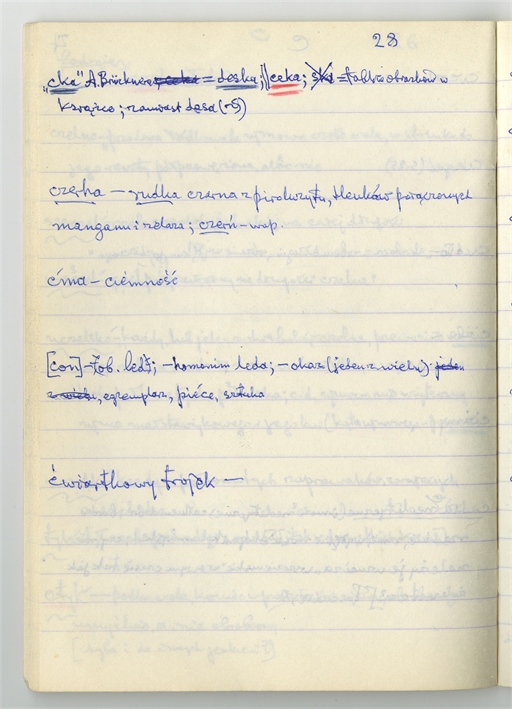 28
"cka" A. Brückner = deska; || ceka; = tablic obrazków w
książce; zamiast desa (~S)
czerha — rudka czarna z pirokrzytu, tlenków połączonych
manganu i żelaza; czerń - wap.
ćma — ciemność
[con] - łob. ledź; — homonim ledo; — okaz (jeden z wielu) jeden
z wielu, egzemplarz, pièce, sztuka
ćwiartkowy trójek —